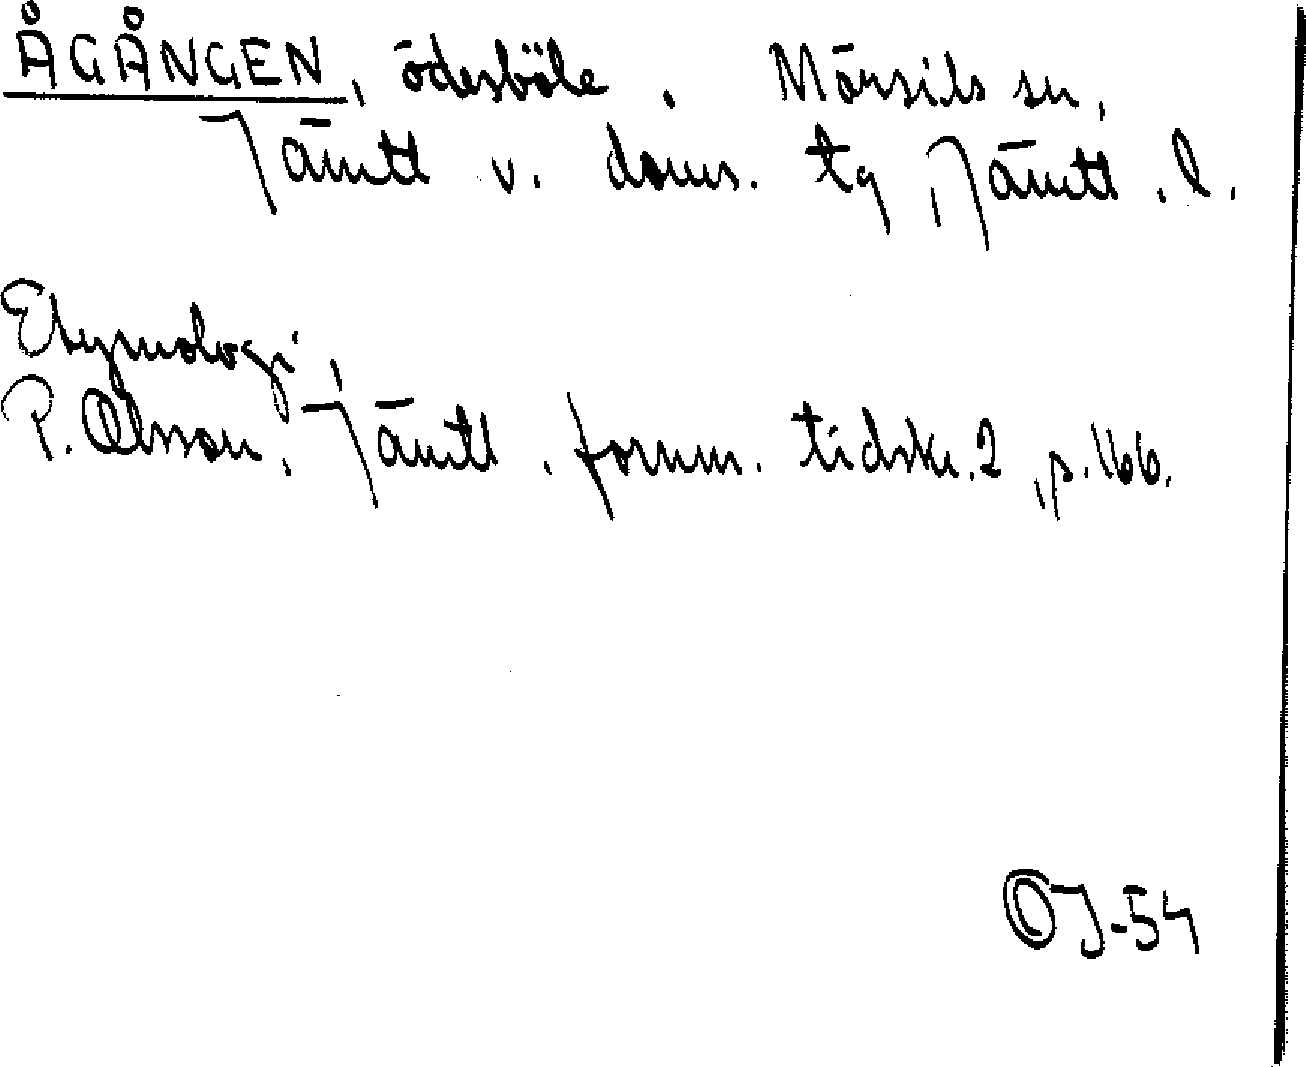 ÅGÅNGEN, ödesböle. Mörsils sn,
Jämtl v. doms. tg, Jämtl. l.
Etymologi,
P. Olsson, Jämtl. fornm. tidskr. 2, s. 166.
OJ-54